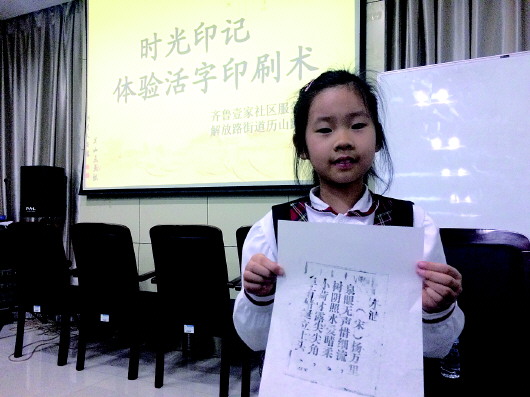 时光印记
体验活字印刷术
齐鲁壹家社区服
解放路街道历山
池
(宋)杨万里
泉眼无声惜细流
树阴照水爱晴柔
小荷才露尖尖角